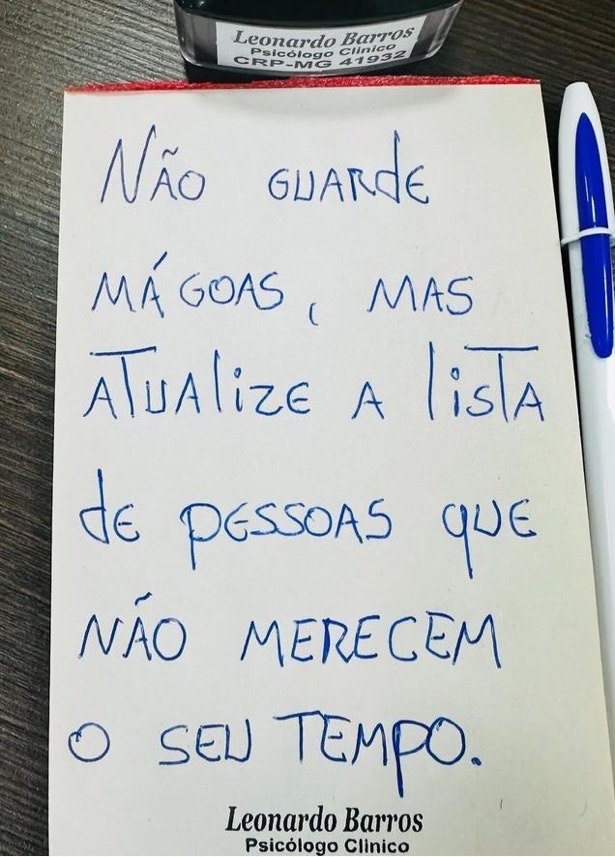 Leonardo Barros
Psicólogo Clinico
CRP-MG 41932
NÃO GUARdE
MÁGOAS, MAS
ATUAlizE A lisTA
dE PESSOAS QUE
NÃO MERECEM
O SEU TEMPO.
Leonardo Barros
Psicólogo Clinico